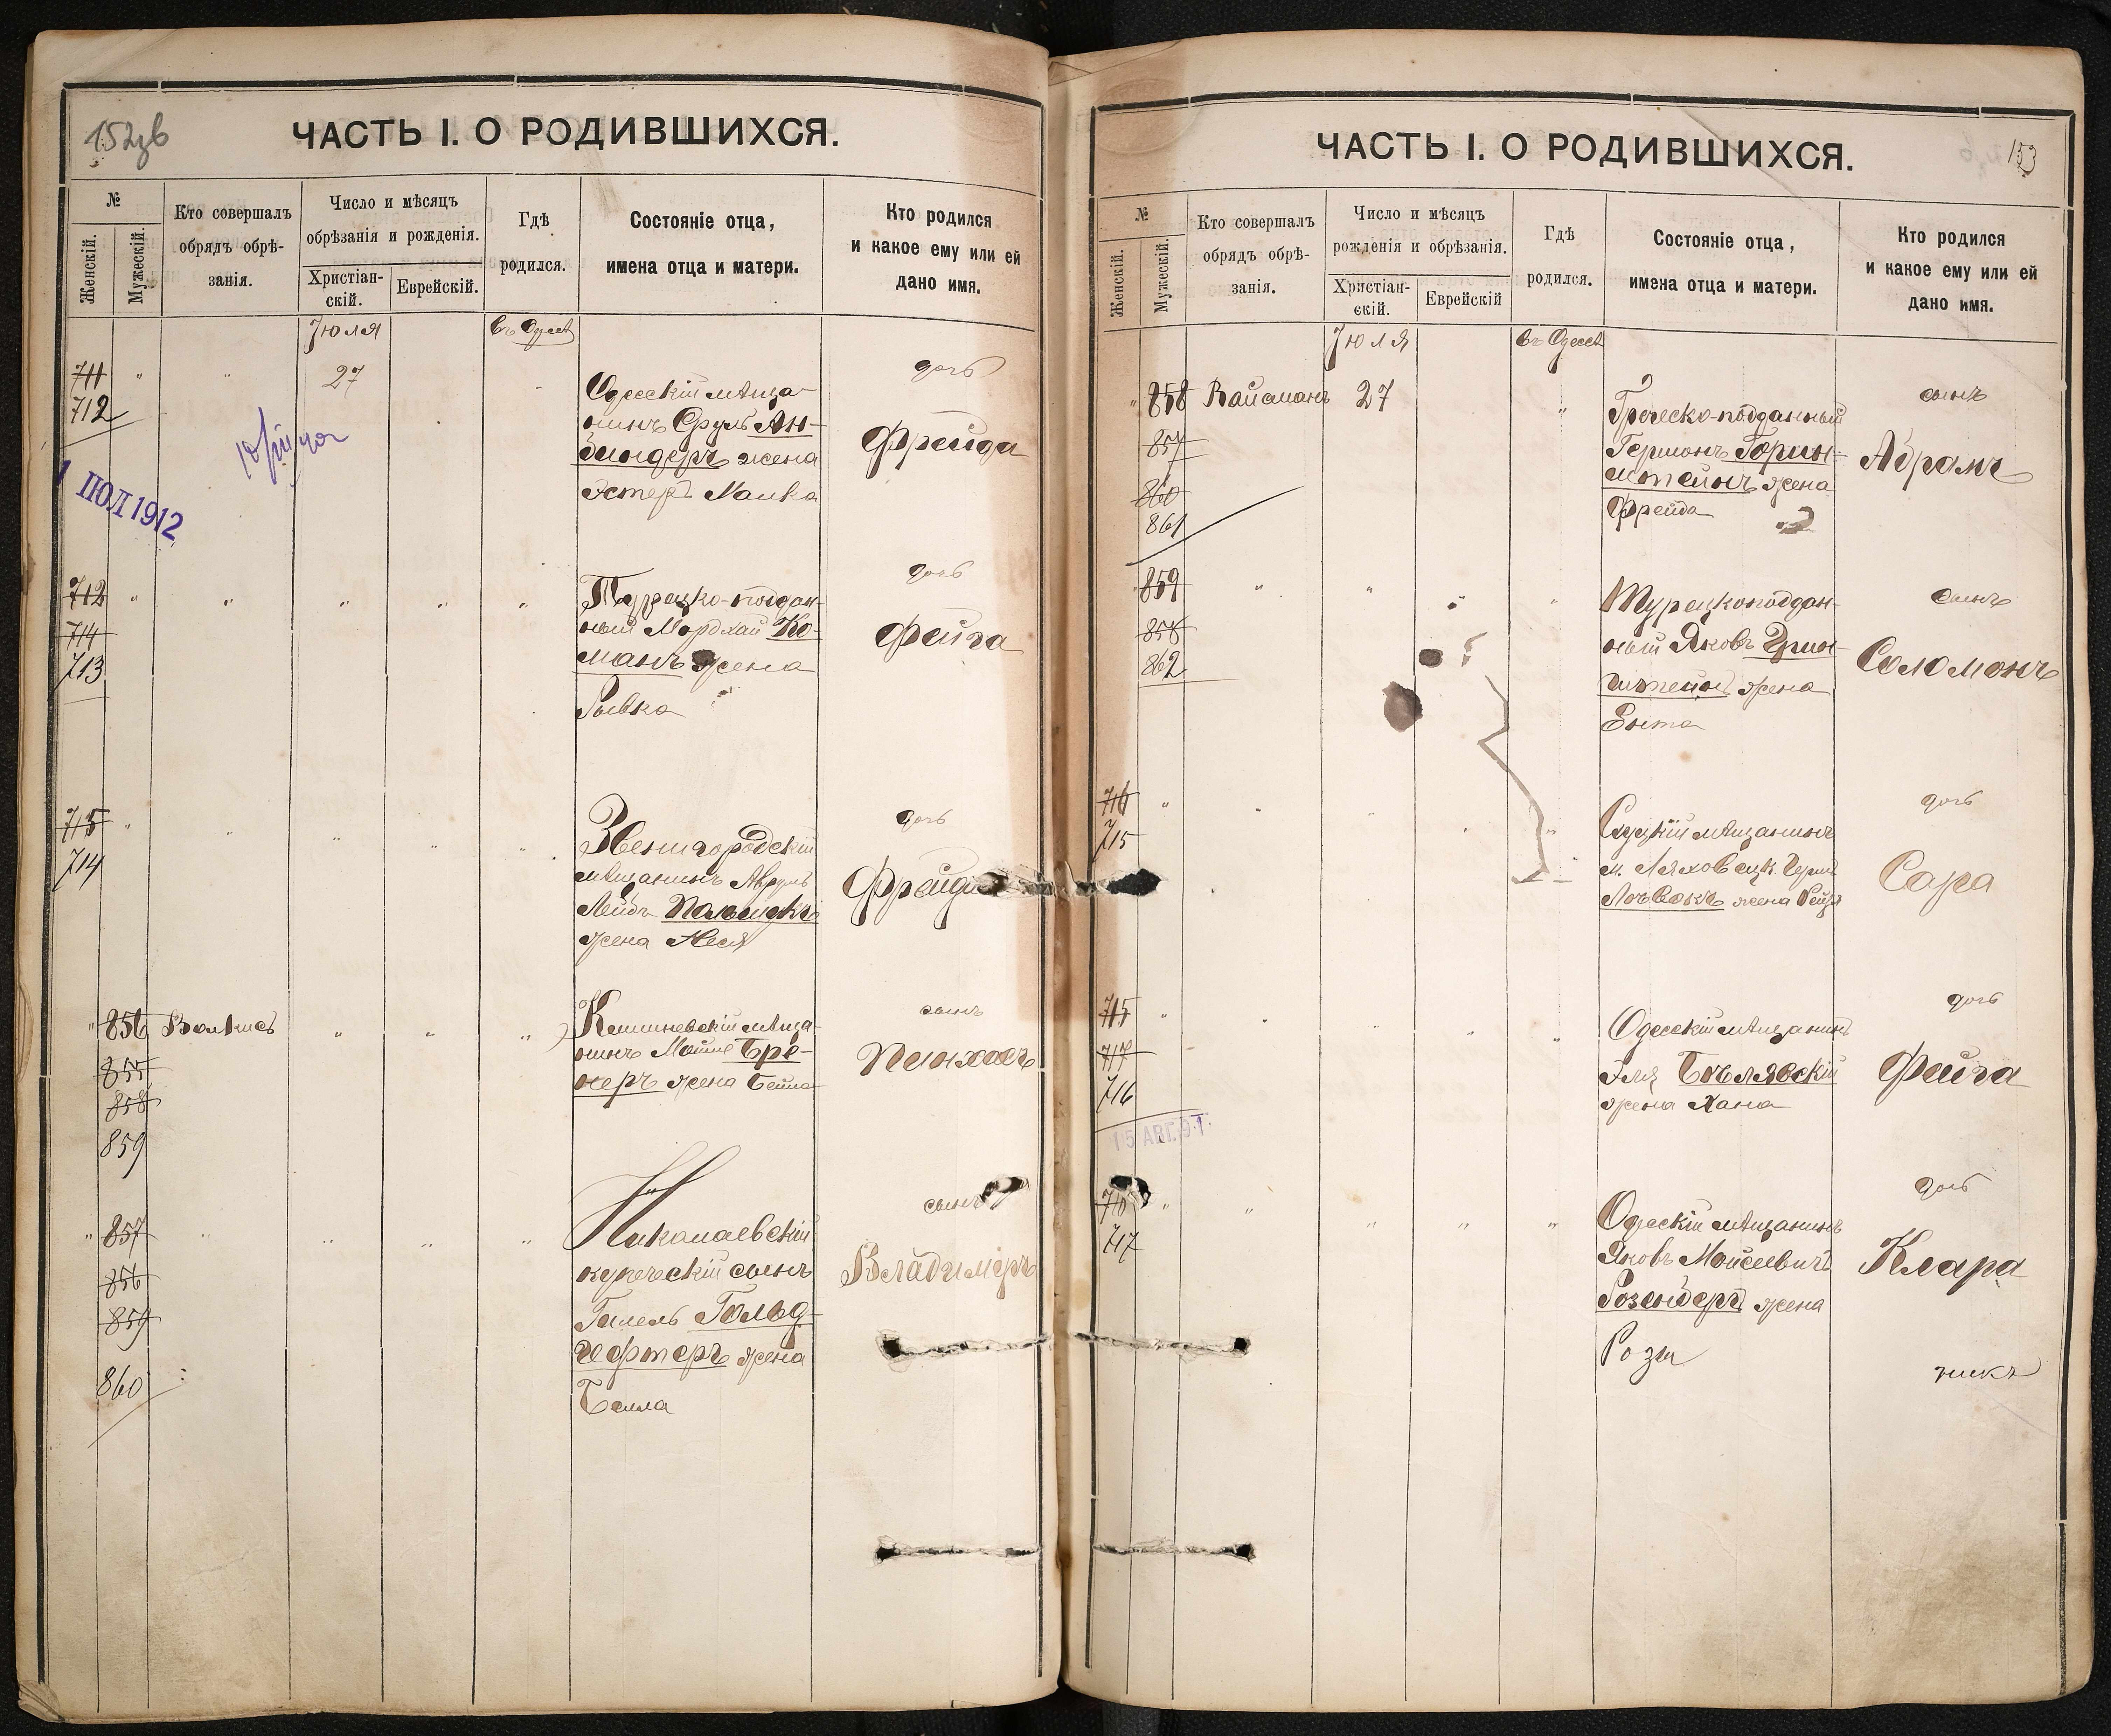 152
ЧАСТЬ I. О РОДИВШИХСЯ.
№
Женскій.
Мужескій.
Кто совершалъ
обрядъ обрѣ-
занія.
Число и мѣсяцъ
обрѣзанія и рожденія.
Христіан-
скій.
Еврейскій.
Гдѣ
родился.
Состояніе отца,
имена отца и матери.
Кто родился
и какое ему или ей
дано имя.
Іюля
въ Одессѣ
711
712
27
Одесскій мѣща-
нинъ Сруль Ан-
биндеръ жена
Эстеръ Малка
дочь
Фрейда
1 ІЮЛ 1912
712
714
713
Турецко-поддан-
ный Мордхай Ко-
манъ жена
Рывка
дочь
Фейга
715
714
Звенигородскій
мѣщанинъ Аврумъ
Лейбъ
жена Аеся
дочь
Фрейда
856
855
858
859
Кишиневскій мѣща-
нинъ Мойше Бре-
неръ жена Бейла
сынъ
Пинхасъ
857
856
859
860
Николаевскій
купеческій сынъ
Гилель Гольд-
гефтеръ жена
Бейла
сынъ
Владимиръ
153
ЧАСТЬ I. О РОДИВШИХСЯ.
№
Женскій.
Мужескій.
Кто совершалъ
обрядъ обрѣ-
занія.
Число и мѣсяцъ
рожденія и обрѣзанія.
Христіан-
скій.
Еврейскій
Гдѣ
родился.
Состояніе отца,
имена отца и матери.
Кто родился
и какое ему или ей
дано имя.
Іюля
въ Одессѣ
858
857
860
861
Вайсманъ
27
Греческо-подданный
Гершонъ Горин-
штейнъ жена
Фрейда
сынъ
Абрамъ
859
858
862
Турецкоподдан-
ный Яковъ Грин-
штейнъ жена
Ента
сынъ
Соломонъ
716
715
Слуцкій мѣщанинъ
м. Ляховецк.
жена
дочь
Сара
715
717
716
Одесскій мѣщанинъ
Эля Бѣлявскій
жена Хана
дочь
Фейга
15 АВГ.
716
717
Одесскій мѣщанинъ
Яковъ Мойсеевичъ
Розендеръ жена
Розы
дочь
Клара